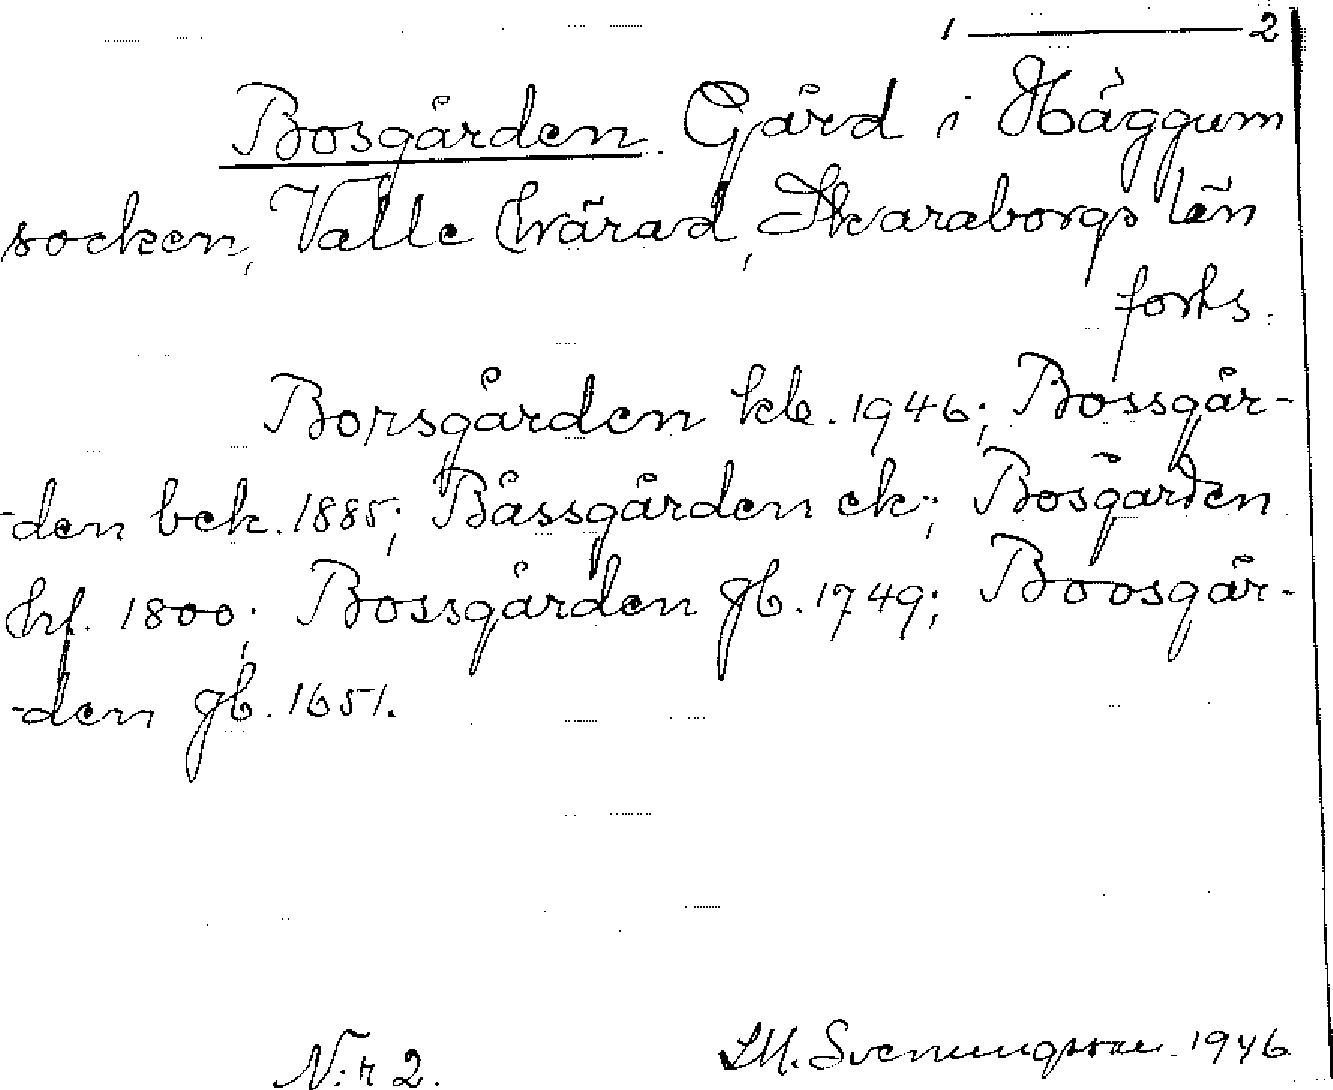 1 ——— 2
Bosgården. Gård i Häggum
socken, Valle härad, Skaraborgs län
forts.
Borsgården kb. 1946; Bossgår-
-den bek. 1885; Båssgården ek.; Bosgården
hrf. 1800; Bossgården gb. 1749; Boosgår-
-den gb. 1651.
N:r 2. LM. Svenungsson 1946